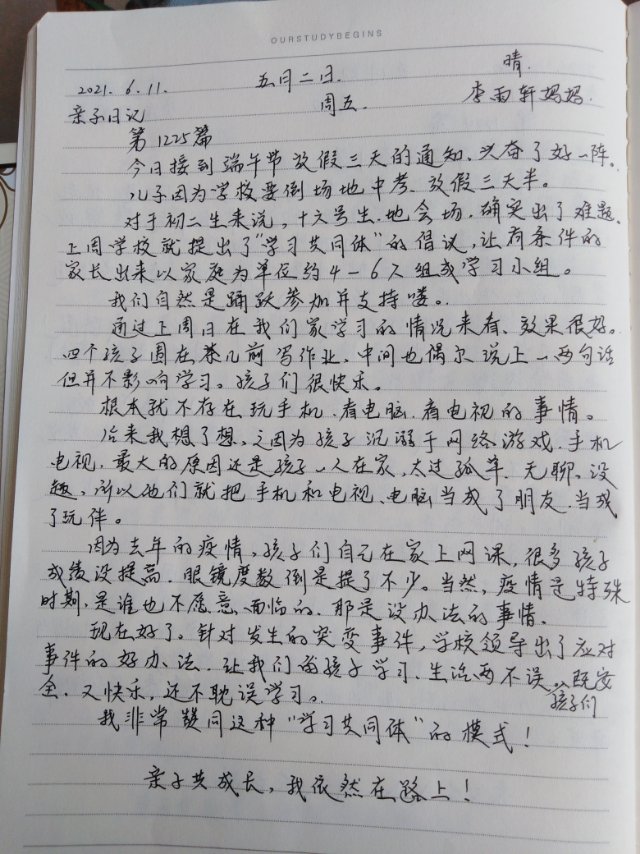 OURSTUDYBEGINS
2021.6.11. 五月二日. 晴.
亲子日记 周五. 李雨轩妈妈.
第1225篇
今日接到端午节放假三天的通知.兴奋了好一阵.
儿子因为学校要倒场地中考.放假三天半。
对于初二生来说,十六号生.地会场.确实出了难题.
上周学校就提出了“学习共同体”的倡议,让有条件的
家长出来以家庭为单位约4-6人组成学习小组。
我们自然是踊跃参加并支持喽。
通过上周日在我们家学习的情况来看、效果很好。
四个孩子围在茶几前写作业、中间也偶尔说上一两句话
但并不影响学习。孩子们很快乐。
根本就不存在玩手机.看电脑.看电视的事情。
后来我想了想,之因为孩子沉溺于网络游戏.手机
电视.最大的原因还是孩子一人在家,太过孤单.无聊、没
趣、所以他们就把手机和电视、电脑当成了朋友.当成
了玩伴。
因为去年的疫情,孩子们自己在家上网课,很多孩子
成绩没提高.眼镜度数倒是提了不少。当然,疫情是特殊
时期,是谁也不愿意面临的.那是没办法的事情.
现在好了。针对发生的突变事件,学校领导出了应对
事件的好办法.让我们的孩子学习.生活两不误。孩子们既安
全.又快乐,还不耽误学习。
我非常赞同这种“学习共同体”的模式!
亲子共成长,我依然在路上!